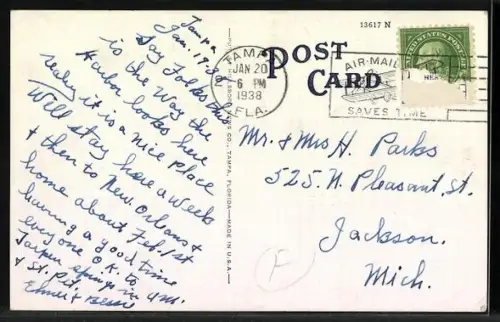 Tampa
Jan. 19.38
Say Folks this
is the way the
Harbor looks here
really it is a nice place
Will stay here a week
& then to New Orleans &
home about Feb. 1st
having a good time
everyone O.K. to
Tarpon Springs in a.m.
& St. Pet.
Elmer & Bessie
13617 N
POST CARD
TAMPA
JAN 20
6 PM
1938
FLA.
AIR-MAIL
SAVES TIME
UNITED STATES POSTAGE
TAMPA, FLORIDA—MADE IN U.S.A.
Mr. & Mrs H. Parks
525 N. Pleasant. St.
Jackson.
Mich.
F